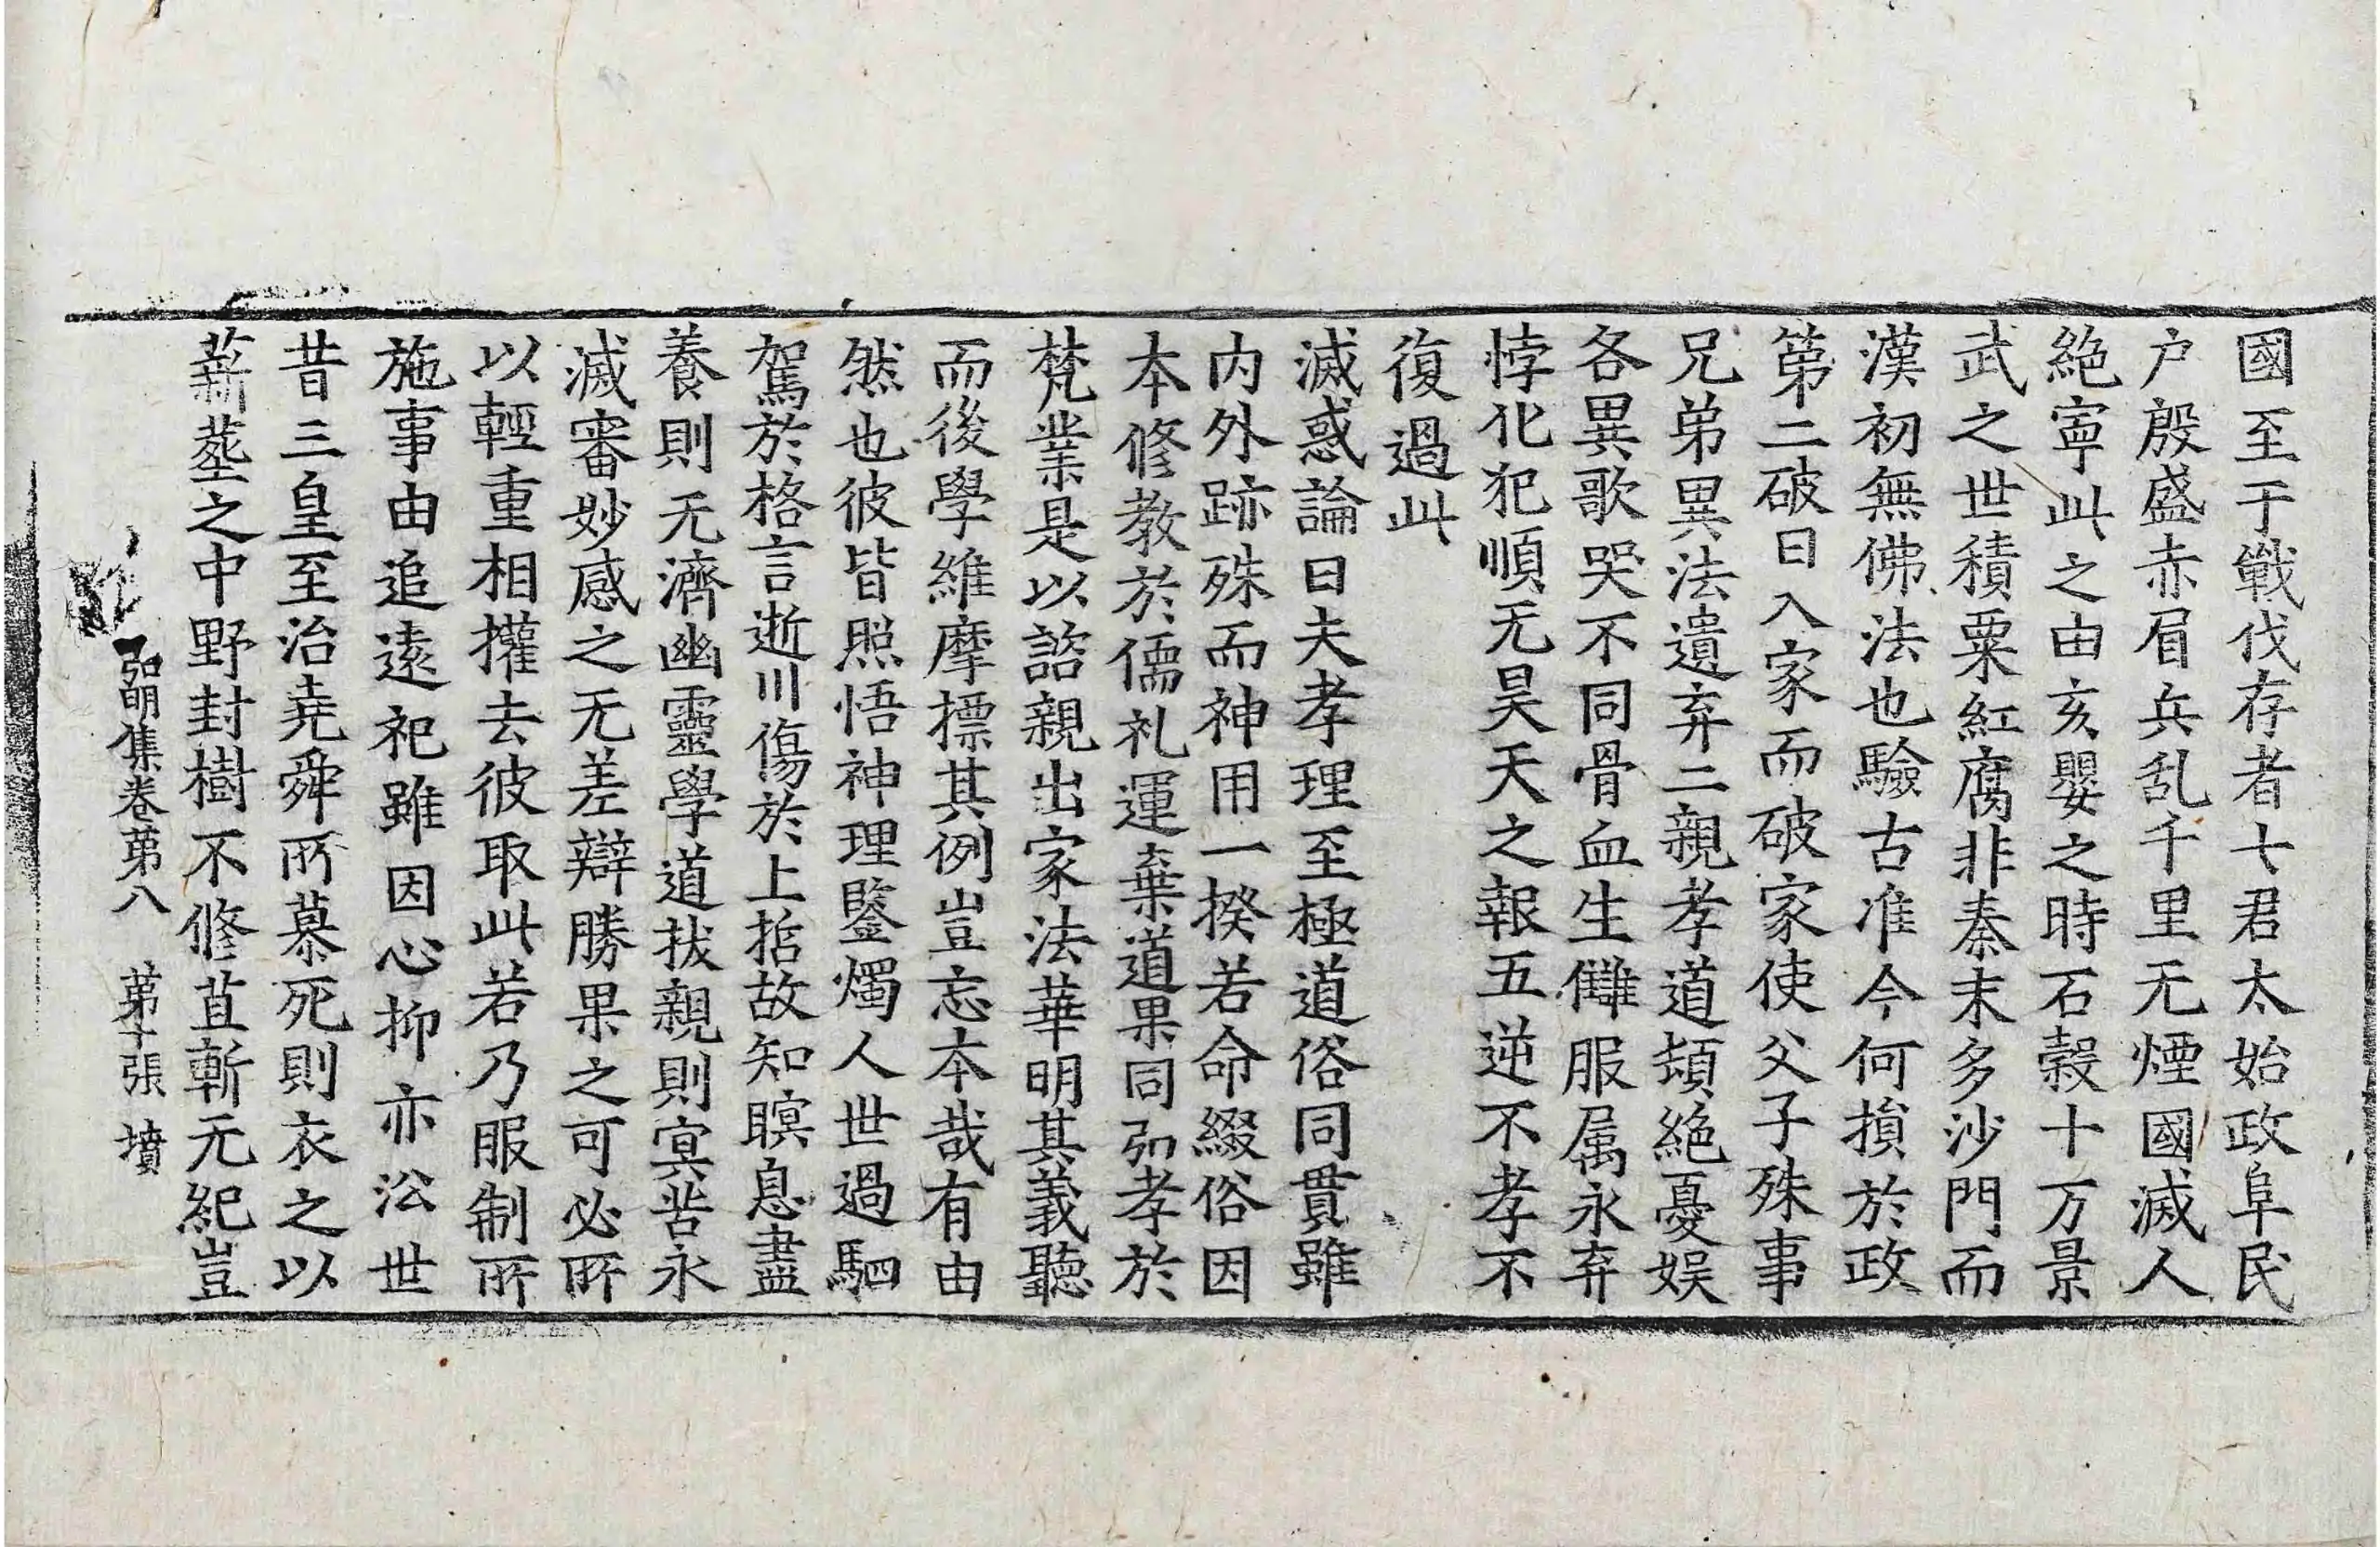 國至于戰伐存者七君太始政阜民
户殷盛赤眉兵乱千里无煙國滅人
絶寧此之由亥嬰之時石榖十万景
武之世積粟紅腐非秦末多沙門而
漢初無佛法也驗古准今何損於政
第二破曰入家而破家使父子殊事
兄弟異法遺弃二親孝道頓絶憂娱
各異歌哭不同骨血生讎服属永弃
悖化犯順无昊天之報五逆不孝不
復過此
滅惑論曰夫孝理至極道俗同貫雖
内外跡殊而神用一揆若命綴俗因
本修教於儒礼運棄道果同弘孝於
梵業是以諮親出家法華明其義聽
而後學維摩摽其例豈忘本哉有由
然也彼皆照悟神理鑒燭人世過駟
駕於格言逝川傷於上哲故知瞑息盡
養則无濟幽靈學道拔親則寘苦永
滅審妙感之无差辯勝果之可必所
以輕重相攉去彼取此若乃服制所
施事由追遠祀雖因心抑亦沿世
昔三皇至治堯舜所慕死則衣之以
薪塟之中野封樹不修苴斬无紀豈
弘明集卷第八 第十張 墳